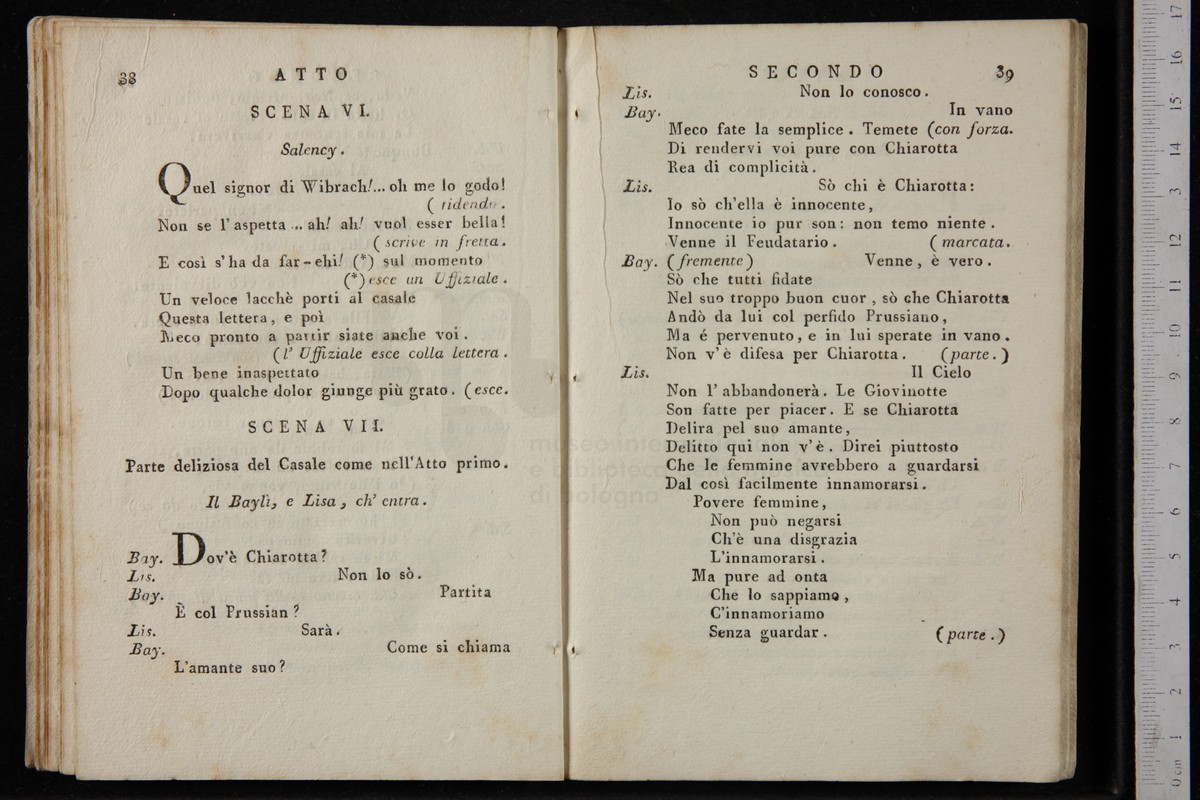 38
ATTO
SCENA VI.
Salency.
Quel signor di Wibrach!... oh me lo godo!
( ridendo.
Non se l'aspetta ... ah! ah! vuol esser bella!
( scrive in fretta.
E così s'ha da far-ehi! (*) sul momento
(*) esce un Uffiziale.
Un veloce lacchè porti al casale
Questa lettera, e poi
Meco pronto a partir siate anche voi.
(l' Uffiziale esce colla lettera.
Un bene inaspettato
Dopo qualche dolor giunge più grato. (esce.
SCENA VII.
Parte deliziosa del Casale come nell'Atto primo.
Il Baylì, e Lisa, ch' entra.
Bay. Dov'è Chiarotta?
Lis. Non lo sò.
Bay. Partita
È col Prussian?
Lis. Sarà.
Bay. Come si chiama
L'amante suo?
SECONDO
39
Lis. Non lo conosco.
Bay. In vano
Meco fate la semplice. Temete (con forza.
Di rendervi voi pure con Chiarotta
Rea di complicità.
Lis. Sò chi è Chiarotta:
Io sò ch'ella è innocente,
Innocente io pur son: non temo niente.
Venne il Feudatario. ( marcata.
Bay. (fremente) Venne, è vero.
Sò che tutti fidate
Nel suo troppo buon cuor, sò che Chiarotta
Andò da lui col perfido Prussiano,
Ma é pervenuto, e in lui sperate in vano.
Non v'è difesa per Chiarotta. (parte.)
Lis. Il Cielo
Non l'abbandonerà. Le Giovinotte
Son fatte per piacer. E se Chiarotta
Delira pel suo amante,
Delitto qui non v'è. Direi piuttosto
Che le femmine avrebbero a guardarsi
Dal così facilmente innamorarsi.
Povere femmine,
Non può negarsi
Ch'è una disgrazia
L'innamorarsi.
Ma pure ad onta
Che lo sappiamo,
C'innamoriamo
Senza guardar. (parte.)
museo internazionale
e biblioteca
di bologna
0 cm 1 2 3 4 5 6 7 8 9 10 11 12 13 14 15 16 17